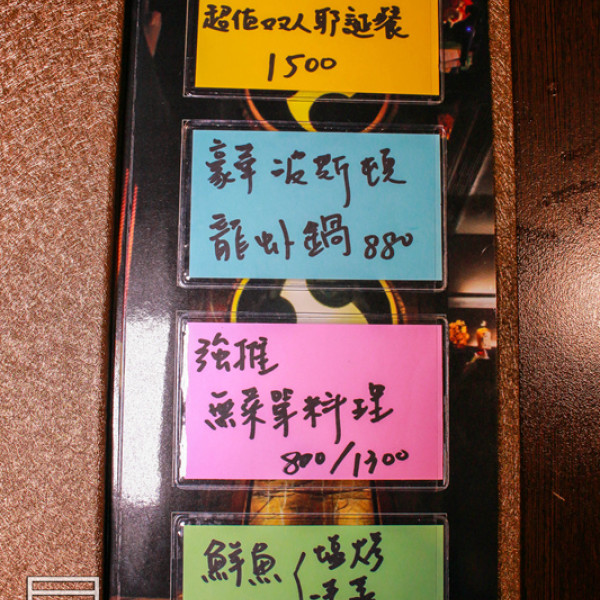 超值双人耶誕餐
1500
豪華波斯頓
龍虾鍋 880
強推
無菜單料理
800/1300
鮮魚 塩烤
清蒸